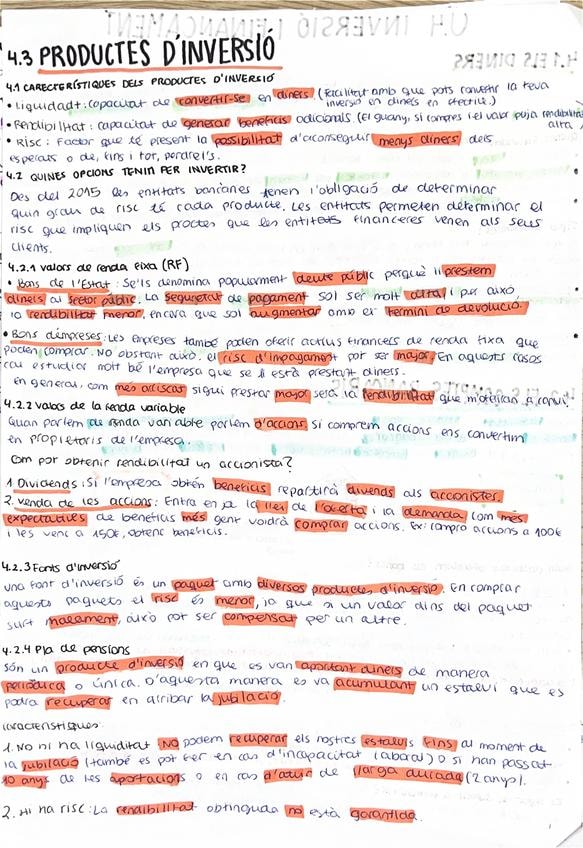 4.3 PRODUCTES D'INVERSIÓ
4.1 CARECTERÍSTIQUES DELS PRODUCTES D'INVERSIÓ
• Liquidadt: capacitat de convertir-se en diners. (facilitat amb que pots convertir la teva
inversió en diners en efectiu.)
• Rendibilitat: capacitat de generar beneficis adicionals. (el guany, si compres i el valor puja rendibilitat
alta.)
• Risc: Factor que té present la possibilitat d'aconseguir menys diners dels
esperats o de, fins i tot, perdrel's.
4.2 QUINES OPCIONS TENIM PER INVERTIR?
Des del 2015 les entitats bancàries tenen l'obligació de determinar
quin grau de risc té cada producte. Les entitats permeten determinar el
risc que impliquen els proctes que les entitats financeres venen als seus
clients.
4.2.1 Valors de renda fixa (RF)
• Bons de l'Estat: Se'ls denomina popularment deute públic perquè li prestem
diners al sector públic. La seguretat de pagament sol ser molt alta i per això
la rendibilitat menor, encara que sol augmentar amb el termini de devolució.
• Bons d'empreses: Les empreses també poden oferir actius financers de renda fixa que
poden comprar. No obstant això, el risc d'impagament pot ser major. En aquests casos
cal estudiar molt bé l'empresa que se li està prestant diners.
en general, com més arriscat sigui prestar major serà la rendibilitat que
4.2.2 Valors de la renda variable
Quan parlem de renda variable parlem d'accions, si comprem accions ens convertim
en propietaris de l'empresa.
Com pot obtenir rendibilitat un accionista?
1. Dividends: Si l'empresa obtén beneficis repartirà divends als accionistes.
2. Venda de les accions: Entra en joc la llei de l'oferta i la demanda com més
expectatives de beneficis més gent voldrà comprar accions. Ex: compro accions a 100€
i les venc a 150€, obtenc beneficis.
4.2.3 Fonts d'inversió
Una font d'inversió és un paquet amb diversos productes d'inversió. En comprar
aquests paquets el risc és menor, ja que si un valor dins del paquet
surt malament, això pot ser compensat per un altre.
4.2.4 Pla de pensions
Són un producte d'inversió en que es van aportant diners de manera
periòdica o única. D'aquesta manera es va acumulant un estalvi que es
podrà recuperar en arribar la jubilació.
Característiques:
1. No hi ha liquiditat No podem recuperar els nostres estalvis fins al moment de
la jubilació (també es pot fer en cas d'incapacitat laboral) o si han passat
10 anys de les aportacions o en cas d'atur de llarga durada (2 anys).
2. Hi ha risc: La rendibilitat obtinguda no està garantida.